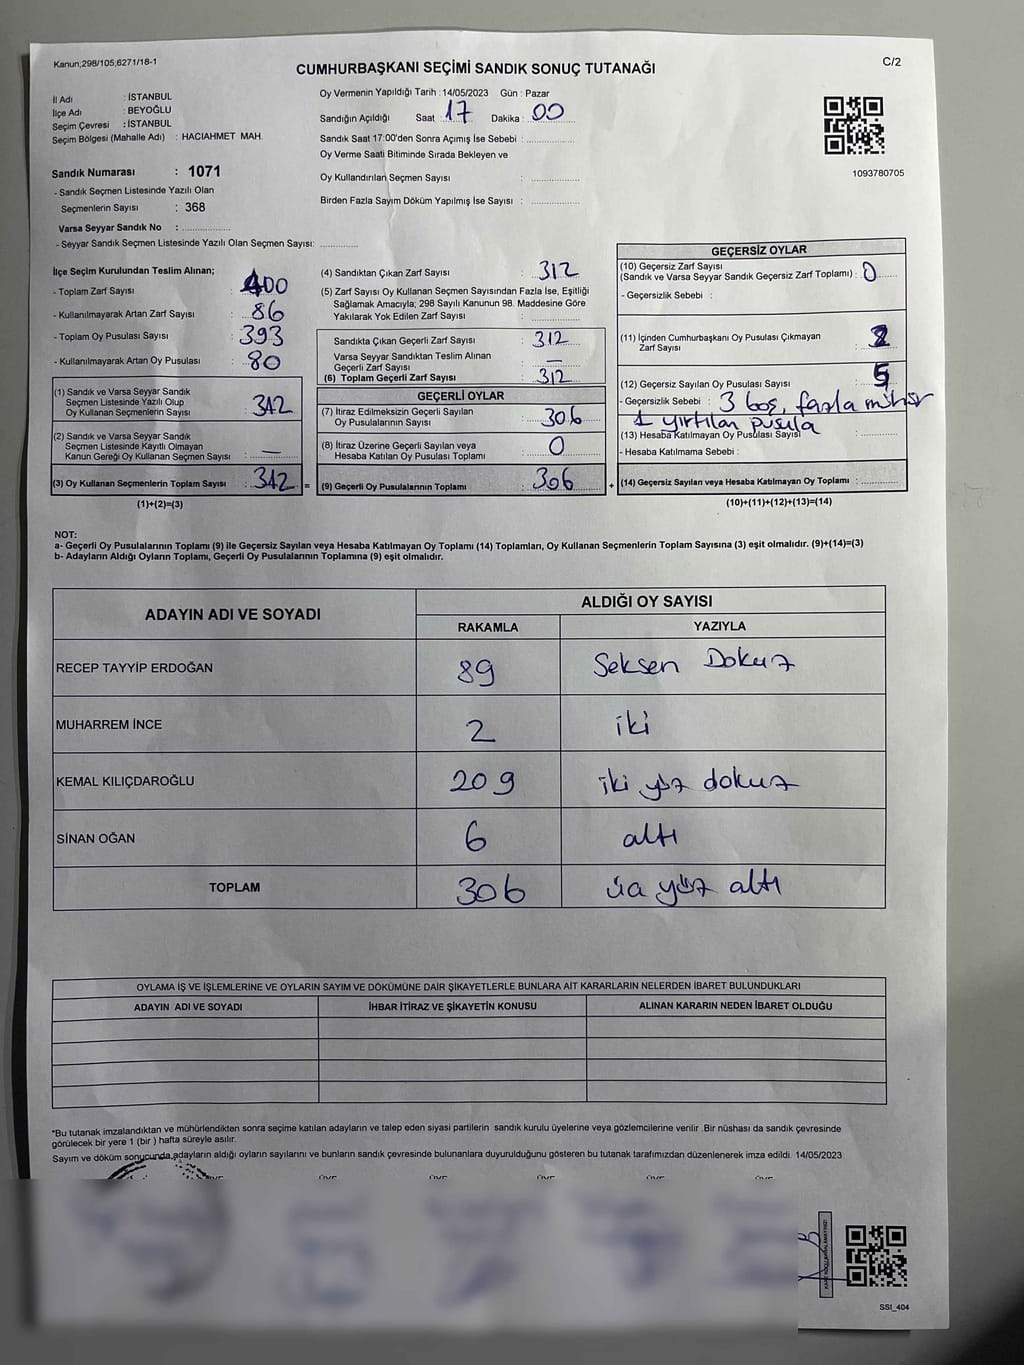 Kanun;298/105;6271/18-1
C/2
CUMHURBAŞKANI SEÇİMİ SANDIK SONUÇ TUTANAĞI
İl Adı : İSTANBUL
İlçe Adı : BEYOĞLU
Seçim Çevresi : İSTANBUL
Seçim Bölgesi (Mahalle Adı) : HACIAHMET MAH.
Sandık Numarası : 1071
- Sandık Seçmen Listesinde Yazılı Olan
Seçmenlerin Sayısı : 368
Varsa Seyyar Sandık No :
- Seyyar Sandık Seçmen Listesinde Yazılı Olan Seçmen Sayısı:
Oy Vermenin Yapıldığı Tarih : 14/05/2023 Gün : Pazar
Sandığın Açıldığı Saat : 17 Dakika : 00
Sandık Saat 17:00'den Sonra Açımış İse Sebebi :
Oy Verme Saati Bitiminde Sırada Bekleyen ve
Oy Kullandırılan Seçmen Sayısı :
Birden Fazla Sayım Döküm Yapılmış İse Sayısı :
1093780705
İlçe Seçim Kurulundan Teslim Alınan;
- Toplam Zarf Sayısı : 400
- Kullanılmayarak Artan Zarf Sayısı : 86
- Toplam Oy Pusulası Sayısı : 393
- Kullanılmayarak Artan Oy Pusulası : 80
(1) Sandık ve Varsa Seyyar Sandık
Seçmen Listesinde Yazılı Olup
Oy Kullanan Seçmenlerin Sayısı : 312
(2) Sandık ve Varsa Seyyar Sandık
Seçmen Listesinde Kayıtlı Olmayan
Kanun Gereği Oy Kullanan Seçmen Sayısı : —
(3) Oy Kullanan Seçmenlerin Toplam Sayısı : 312 =
(1)+(2)=(3)
(4) Sandıktan Çıkan Zarf Sayısı : 312
(5) Zarf Sayısı Oy Kullanan Seçmen Sayısından Fazla İse, Eşitliği
Sağlamak Amacıyla; 298 Sayılı Kanunun 98. Maddesine Göre
Yakılarak Yok Edilen Zarf Sayısı :
Sandıkta Çıkan Geçerli Zarf Sayısı : 312
Varsa Seyyar Sandıktan Teslim Alınan
Geçerli Zarf Sayısı : —
(6) Toplam Geçerli Zarf Sayısı : 312
GEÇERLİ OYLAR
(7) İtiraz Edilmeksizin Geçerli Sayılan
Oy Pusulasının Sayısı : 306
(8) İtiraz Üzerine Geçerli Sayılan veya
Hesaba Katılan Oy Pusulası Toplamı : 0
(9) Geçerli Oy Pusulalarının Toplamı : 306 +
GEÇERSİZ OYLAR
(10) Geçersiz Zarf Sayısı
(Sandık ve Varsa Seyyar Sandık Geçersiz Zarf Toplamı) : 0
- Geçersizlik Sebebi :
(11) İçinden Cumhurbaşkanı Oy Pusulası Çıkmayan
Zarf Sayısı :
(12) Geçersiz Sayılan Oy Pusulası Sayısı : 5
- Geçersizlik Sebebi : 3 boş, fazla mühür
1 yırtılan pusula
(13) Hesaba Katılmayan Oy Pusulası Sayısı :
- Hesaba Katılmama Sebebi :
(14) Geçersiz Sayılan veya Hesaba Katılmayan Oy Toplamı :
(10)+(11)+(12)+(13)=(14)
NOT:
a- Geçerli Oy Pusulalarının Toplamı (9) ile Geçersiz Sayılan veya Hesaba Katılmayan Oy Toplamı (14) Toplamları, Oy Kullanan Seçmenlerin Toplam Sayısına (3) eşit olmalıdır. (9)+(14)=(3)
b- Adayların Aldığı Oyların Toplamı, Geçerli Oy Pusulalarının Toplamına (9) eşit olmalıdır.
ADAYIN ADI VE SOYADI
ALDIĞI OY SAYISI
RAKAMLA YAZIYLA
RECEP TAYYİP ERDOĞAN 89 Seksen Dokuz
MUHARREM İNCE 2 iki
KEMAL KILIÇDAROĞLU 209 iki yüz dokuz
SİNAN OĞAN 6 altı
TOPLAM 306 üç yüz altı
OYLAMA İŞ VE İŞLEMLERİNE VE OYLARIN SAYIM VE DÖKÜMÜNE DAİR ŞİKAYETLERLE BUNLARA AİT KARARLARIN NELERDEN İBARET BULUNDUKLARI
ADAYIN ADI VE SOYADI İHBAR İTİRAZ VE ŞİKAYETİN KONUSU ALINAN KARARIN NEDEN İBARET OLDUĞU
*Bu tutanak imzalandıktan ve mühürlendikten sonra seçime katılan adayların ve talep eden siyasi partilerin sandık kurulu üyelerine veya gözlemcilerine verilir .Bir nüshası da sandık çevresinde
görülecek bir yere 1 (bir ) hafta süreyle asılır.
Sayım ve döküm sonucunda,adayların aldığı oyların sayılarını ve bunların sandık çevresinde bulunanlara duyurulduğunu gösteren bu tutanak tarafımızdan düzenlenerek imza edildi. 14/05/2023
SSI_404